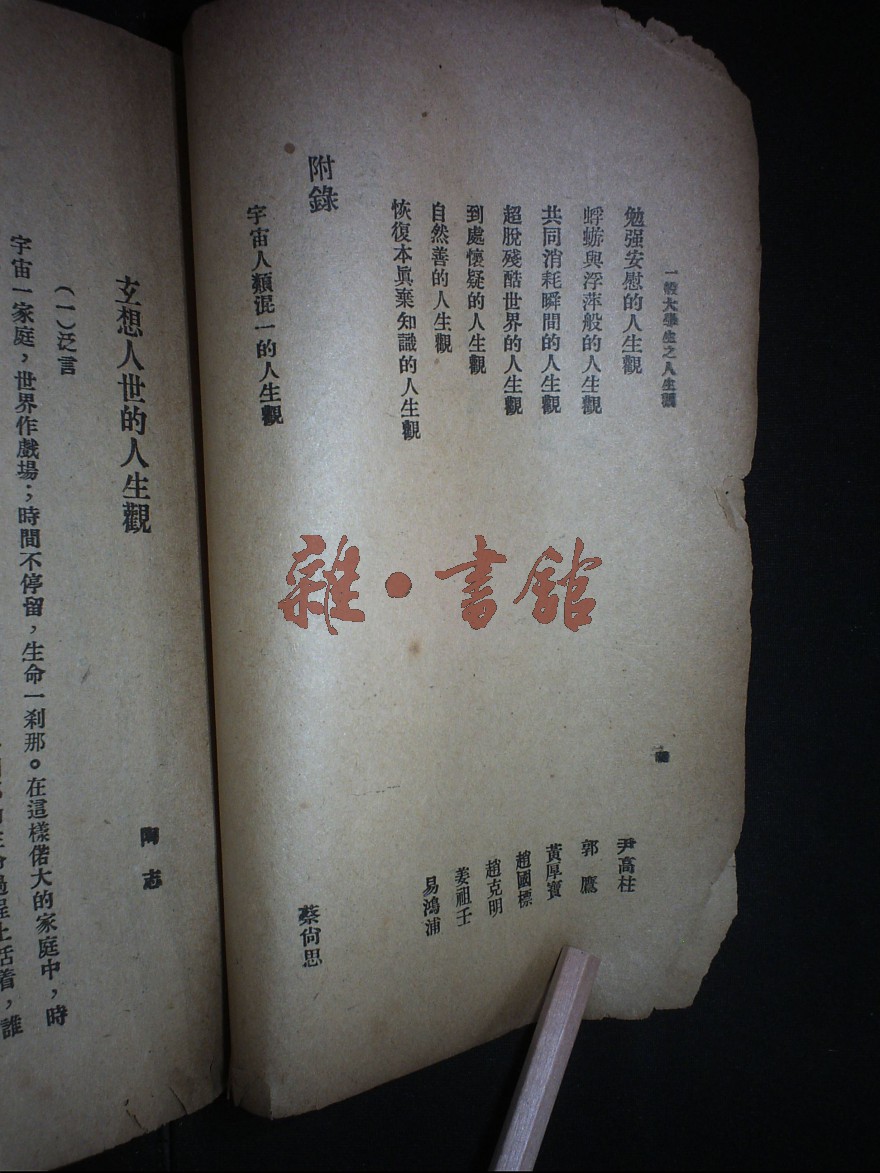 一般大學生之人生觀
勉强安慰的人生觀 尹高柱
蜉蝣與浮萍般的人生觀 郭鷹
共同消耗瞬間的人生觀 黃厚寶
超脫殘酷世界的人生觀 趙國標
到處懷疑的人生觀 趙克明
自然善的人生觀 姜祖壬
恢復本眞棄知識的人生觀 易鴻浦
附錄
宇宙人類混一的人生觀 蔡尙思
雜·書館
玄想人世的人生觀
陶志
(一)泛言
宇宙一家庭，世界作戲場；時間不停留，生命一刹那。在這樣偌大的家庭中，時
過程上活着，誰